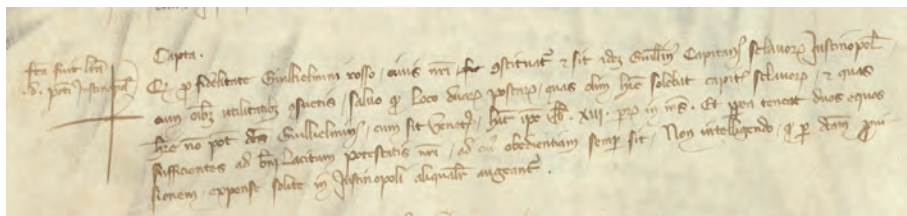 Capta.
fca fuit lra
d. poti Justinopol
Q p fidelitate Guillielmini rosso, civis nri constituat & sit idz Guillin Capitan sclavorz Justinopol.
cum oibz utilitatibz consuetis, salvo q loco duarz postarz, quas olim hre solebat capit sclavorz, & quas
hre no pot dcs Guillielmin, cum sit Venet, hat ipe lib. XIII. pvorz in ms. Et pterea teneat duos equos
sufficientes ad bnplacitum potestatis nri, ad cui obedientiam semp sit, Non intelligendo, q p dcam provi
sionem, expense solite in Justinopoli aliqualr augeant.